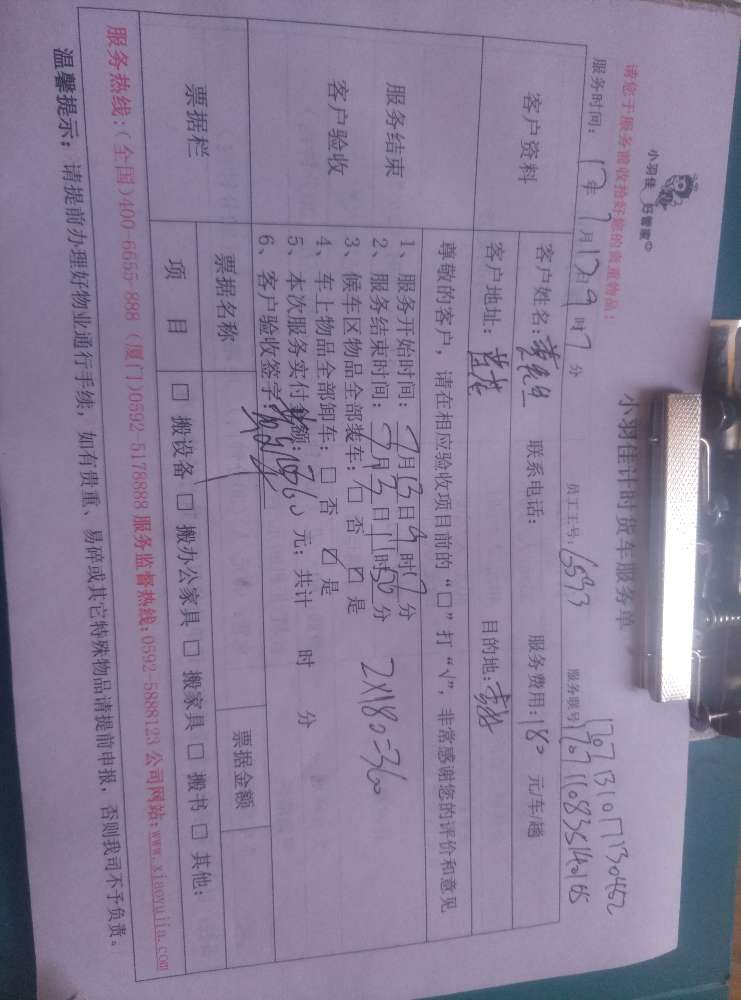 小羽佳 好管家
小羽佳计时货车服务单
请您于服务前收拾好您的贵重物品!
服务时间: 17年 7月13日 9 时 7 分 员工工号: 6593 服务账号:
客户资料
客户姓名: 黄先生 联系电话: 服务费用: 180 元/车/趟
客户地址: 目的地:
服务结束
客户验收
尊敬的客户,请在相应验收项目前的“□”打“√”,非常感谢您的评价和意见
1、服务开始时间: 7月13日9时7分
2、服务结束时间: 7月13日11时56分
2×180=360
3、候车区物品全部装车: □ 否 ☑ 是
4、车上物品全部卸车: □ 否 ☑ 是
5、本次服务实付金额: 360 元; 共计 时 分
6、客户验收签字:
票据栏
票据名称 票据金额
项 目 □ 搬设备 □ 搬办公家具 □ 搬家具 □ 搬书 □ 其他:
服务热线:(全国)400-6655-888 (厦门)0592-5178888 服务监督热线:0592-5888123 公司网站:www.xiaoyujia.com
温馨提示:请提前办理好物业通行手续,如有贵重、易碎或其它特殊物品请提前申报,否则我司不予负责。